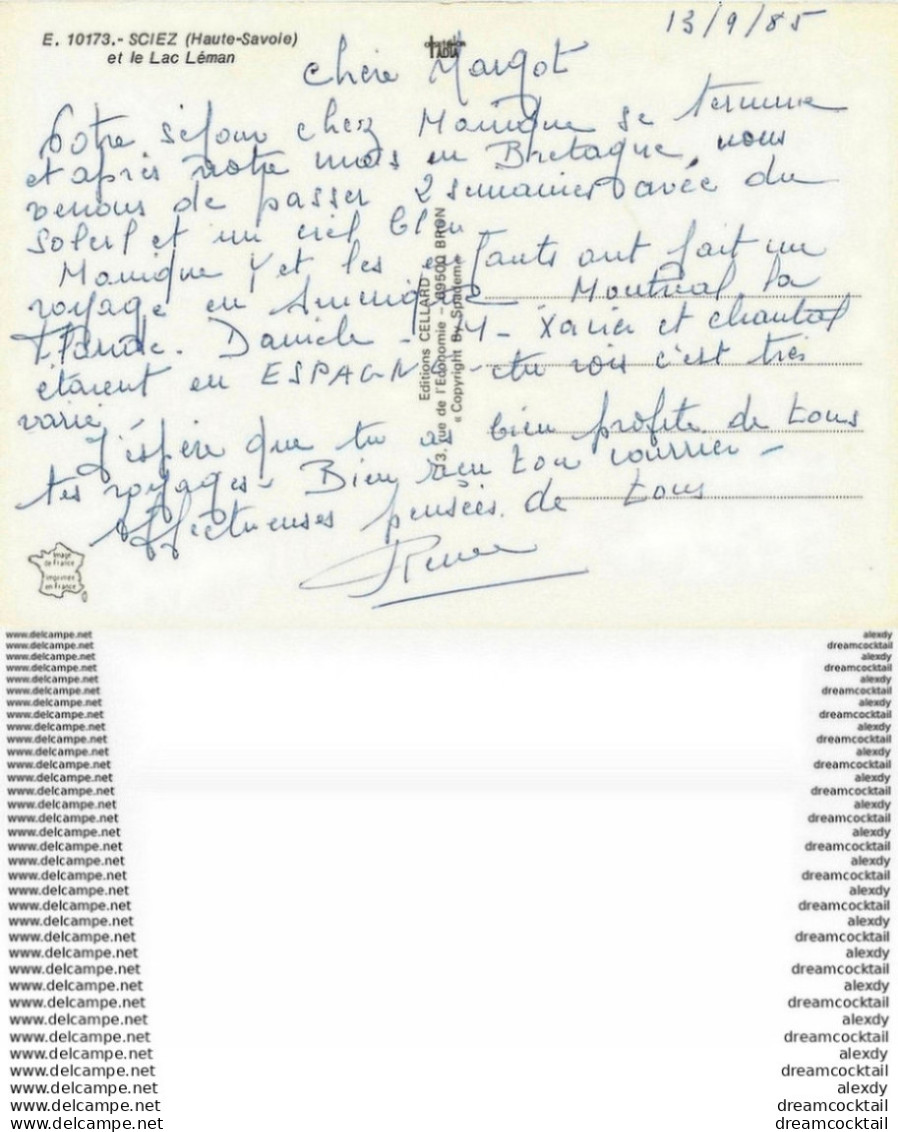 E. 10173.- SCIEZ (Haute-Savoie)
et le Lac Léman
13/9/85
Chère Margot
Notre séjour chez Monique se termine
et après notre mois en Bretagne, nous
venons de passer 2 semaines avec du
soleil et un ciel bleu
Monique et les enfants ont fait un
voyage en Amérique Montréal la
Floride. Daniele - M - Xavier et Chantal
étaient en ESPAGNE - tu vois c'est très
varié
J'espère que tu as bien profité de tous
tes voyages - Bien reçu ton courrier -
Affectueuses pensées de tous
Renee
Editions CELLARD
rue de l'Economie - 69500 BRON
« Copyright By Spadem »
Image
de France
Imprimée
en France
www.delcampe.net alexdy
www.delcampe.net dreamcocktail
www.delcampe.net alexdy
www.delcampe.net dreamcocktail
www.delcampe.net alexdy
www.delcampe.net dreamcocktail
www.delcampe.net alexdy
www.delcampe.net dreamcocktail
www.delcampe.net alexdy
www.delcampe.net dreamcocktail
www.delcampe.net alexdy
www.delcampe.net dreamcocktail
www.delcampe.net alexdy
www.delcampe.net dreamcocktail
www.delcampe.net alexdy
www.delcampe.net dreamcocktail
www.delcampe.net alexdy
www.delcampe.net dreamcocktail
www.delcampe.net alexdy
www.delcampe.net dreamcocktail
www.delcampe.net alexdy
www.delcampe.net dreamcocktail
www.delcampe.net alexdy
www.delcampe.net dreamcocktail
www.delcampe.net alexdy
www.delcampe.net dreamcocktail
www.delcampe.net alexdy
www.delcampe.net dreamcocktail
www.delcampe.net alexdy
www.delcampe.net dreamcocktail
www.delcampe.net alexdy
www.delcampe.net dreamcocktail
www.delcampe.net alexdy
www.delcampe.net dreamcocktail
www.delcampe.net dreamcocktail